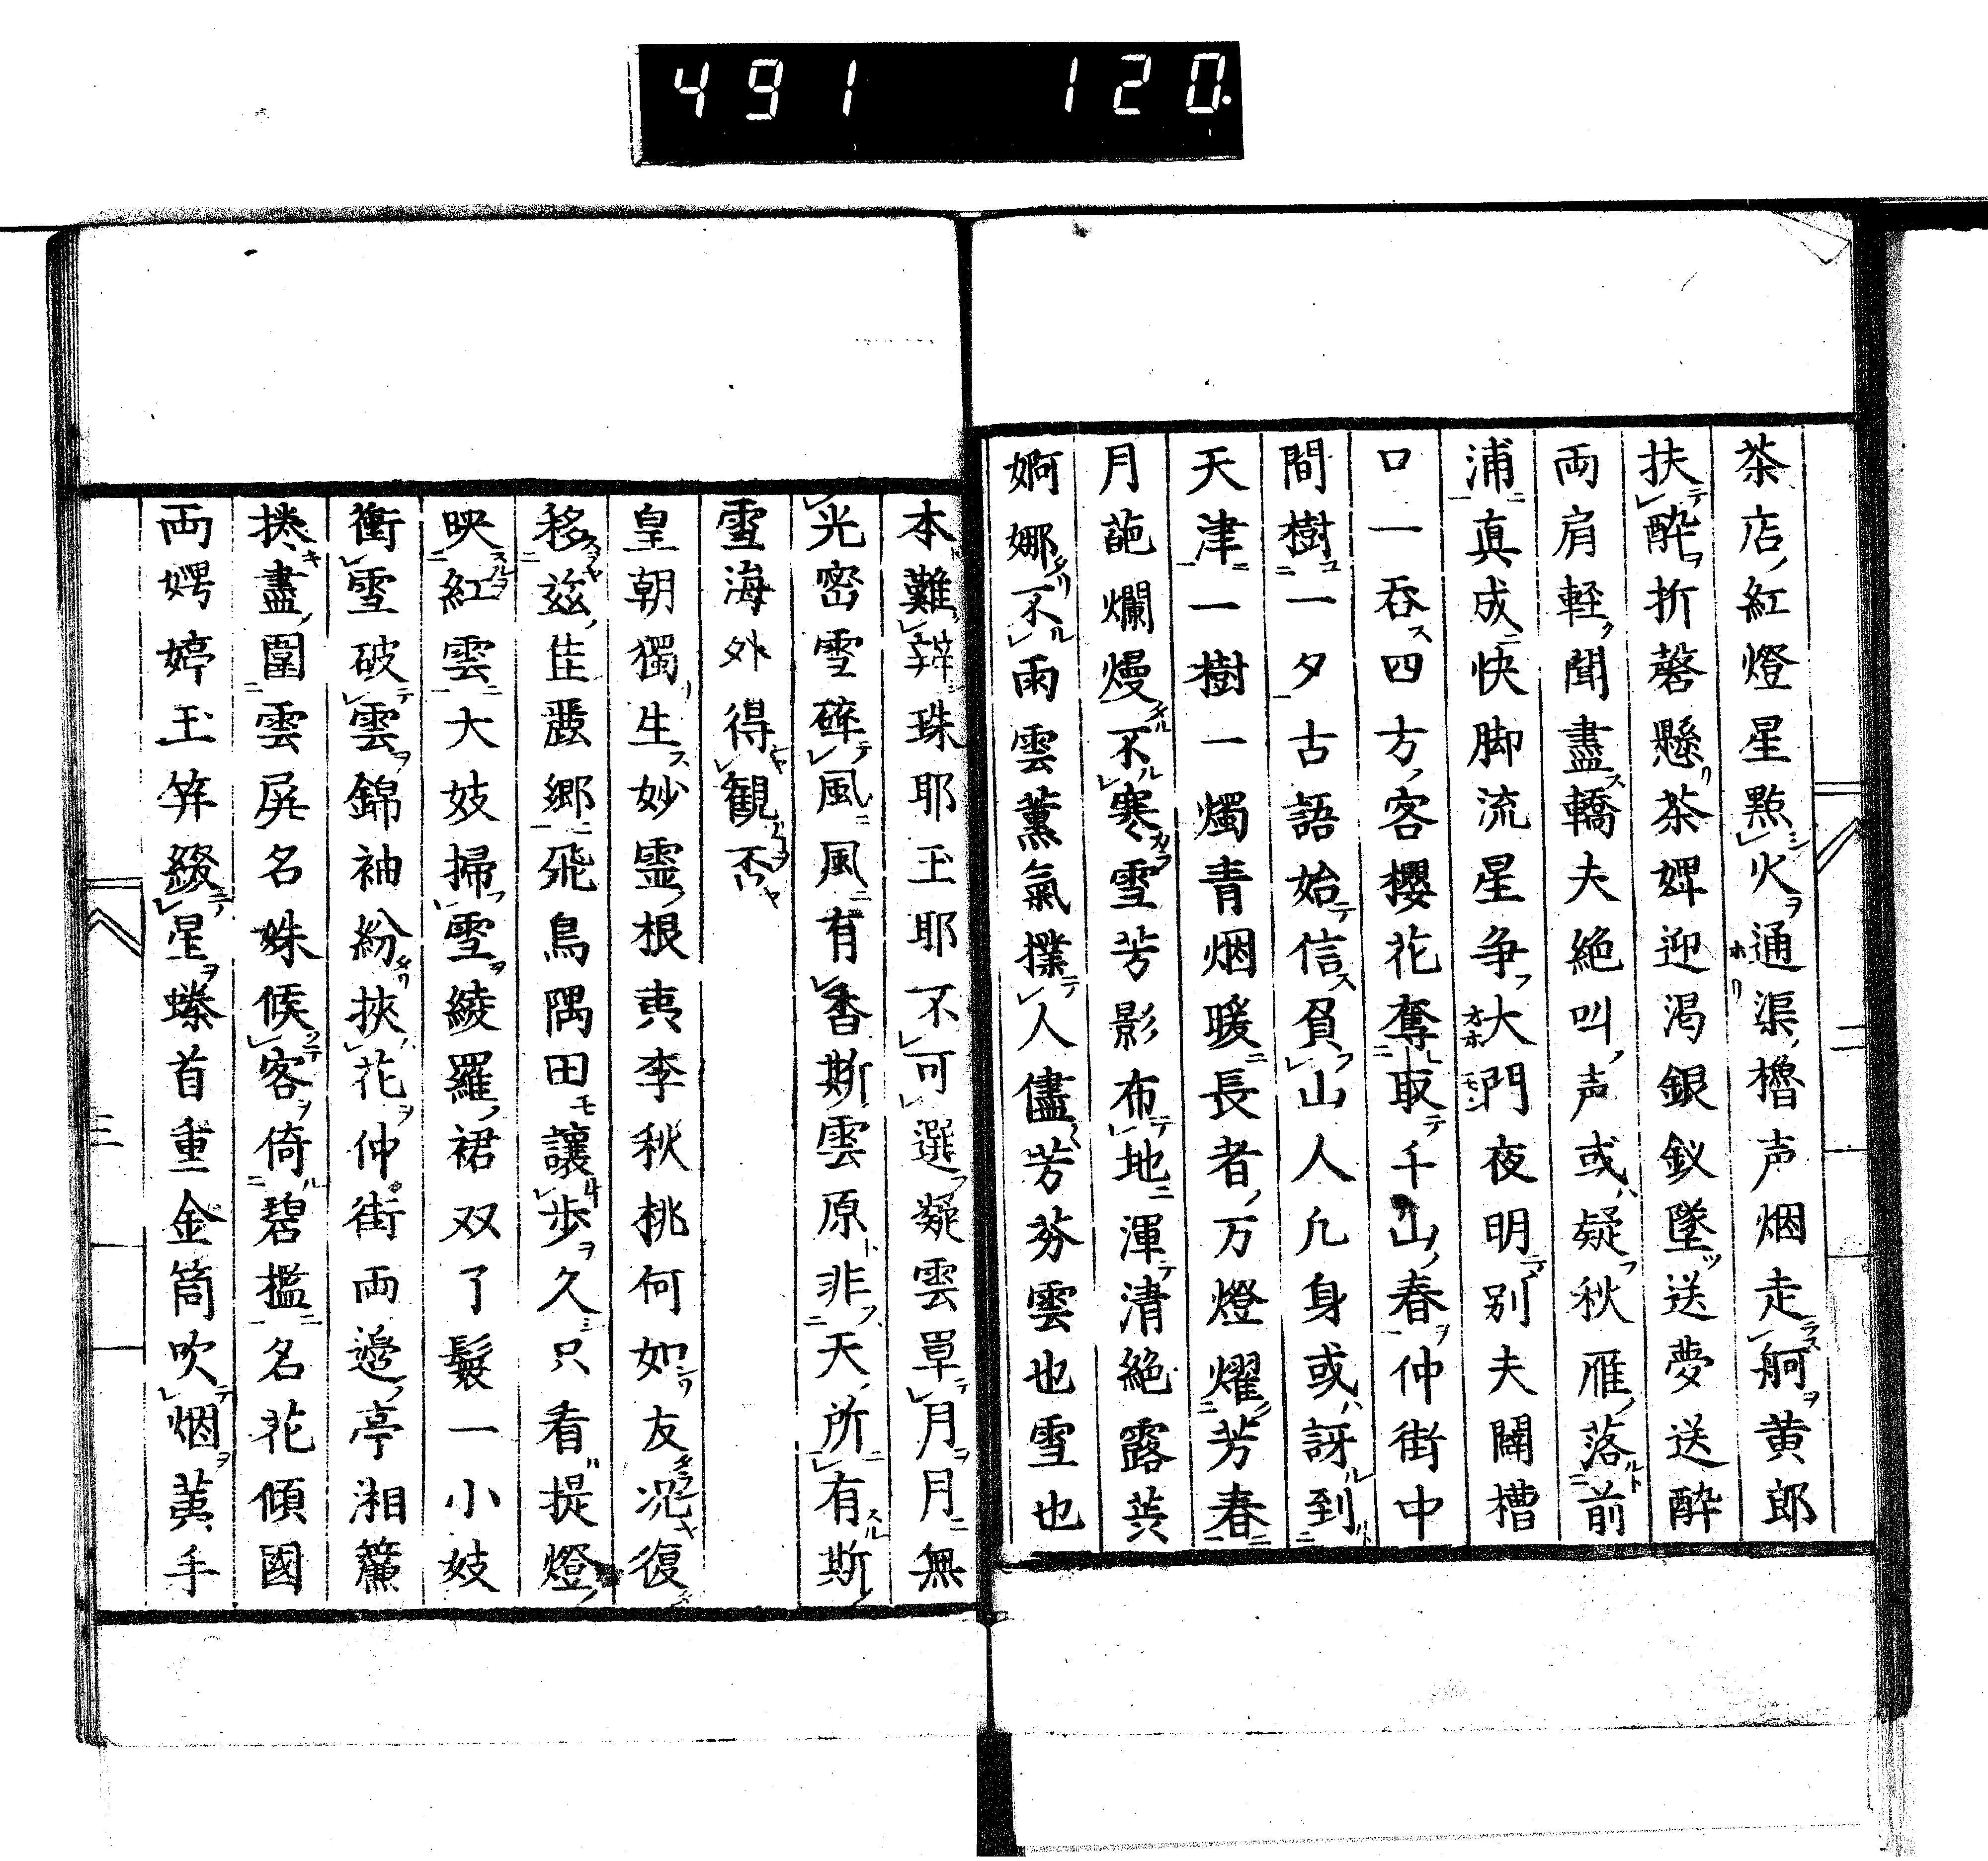 491 120
茶店紅燈星點火通渠櫓声烟走舸黄郎
扶酔折磬懸茶婢迎渇銀釵墜送夢送酔
両肩軽聞盡轎夫絶叫声或疑秋雁落前
浦真成快脚流星争大門夜明別夫閙槽
口一呑四方客櫻花奪取千山春仲街中
間樹一夕古語始信負山人凢身或訝到
天津一樹一燭青烟暖長者万燈燿芳春
月葩爛熳不寒雪芳影布地渾清絶露蕊
婀娜不雨雲薫氣撲人儘芳芬雲也雪也
本難辨珠耶玉耶不可選凝雲罩月月無
光密雪碎風風有香斯雲原非天所有斯
雪海外得観否
皇朝獨生妙霊根夷李秋桃何如友况復
移茲佳麗郷飛鳥隅田讓歩久只看提燈
映紅雲大妓掃雪綾羅裙双了鬟一小妓
衝雪破雲錦袖紛挾花仲街両邉亭湘簾
捲盡圍雲屏名姝候客倚碧檻名花傾國
両娉婷玉笄綴星螓首重金筒吹烟荑手
二
三